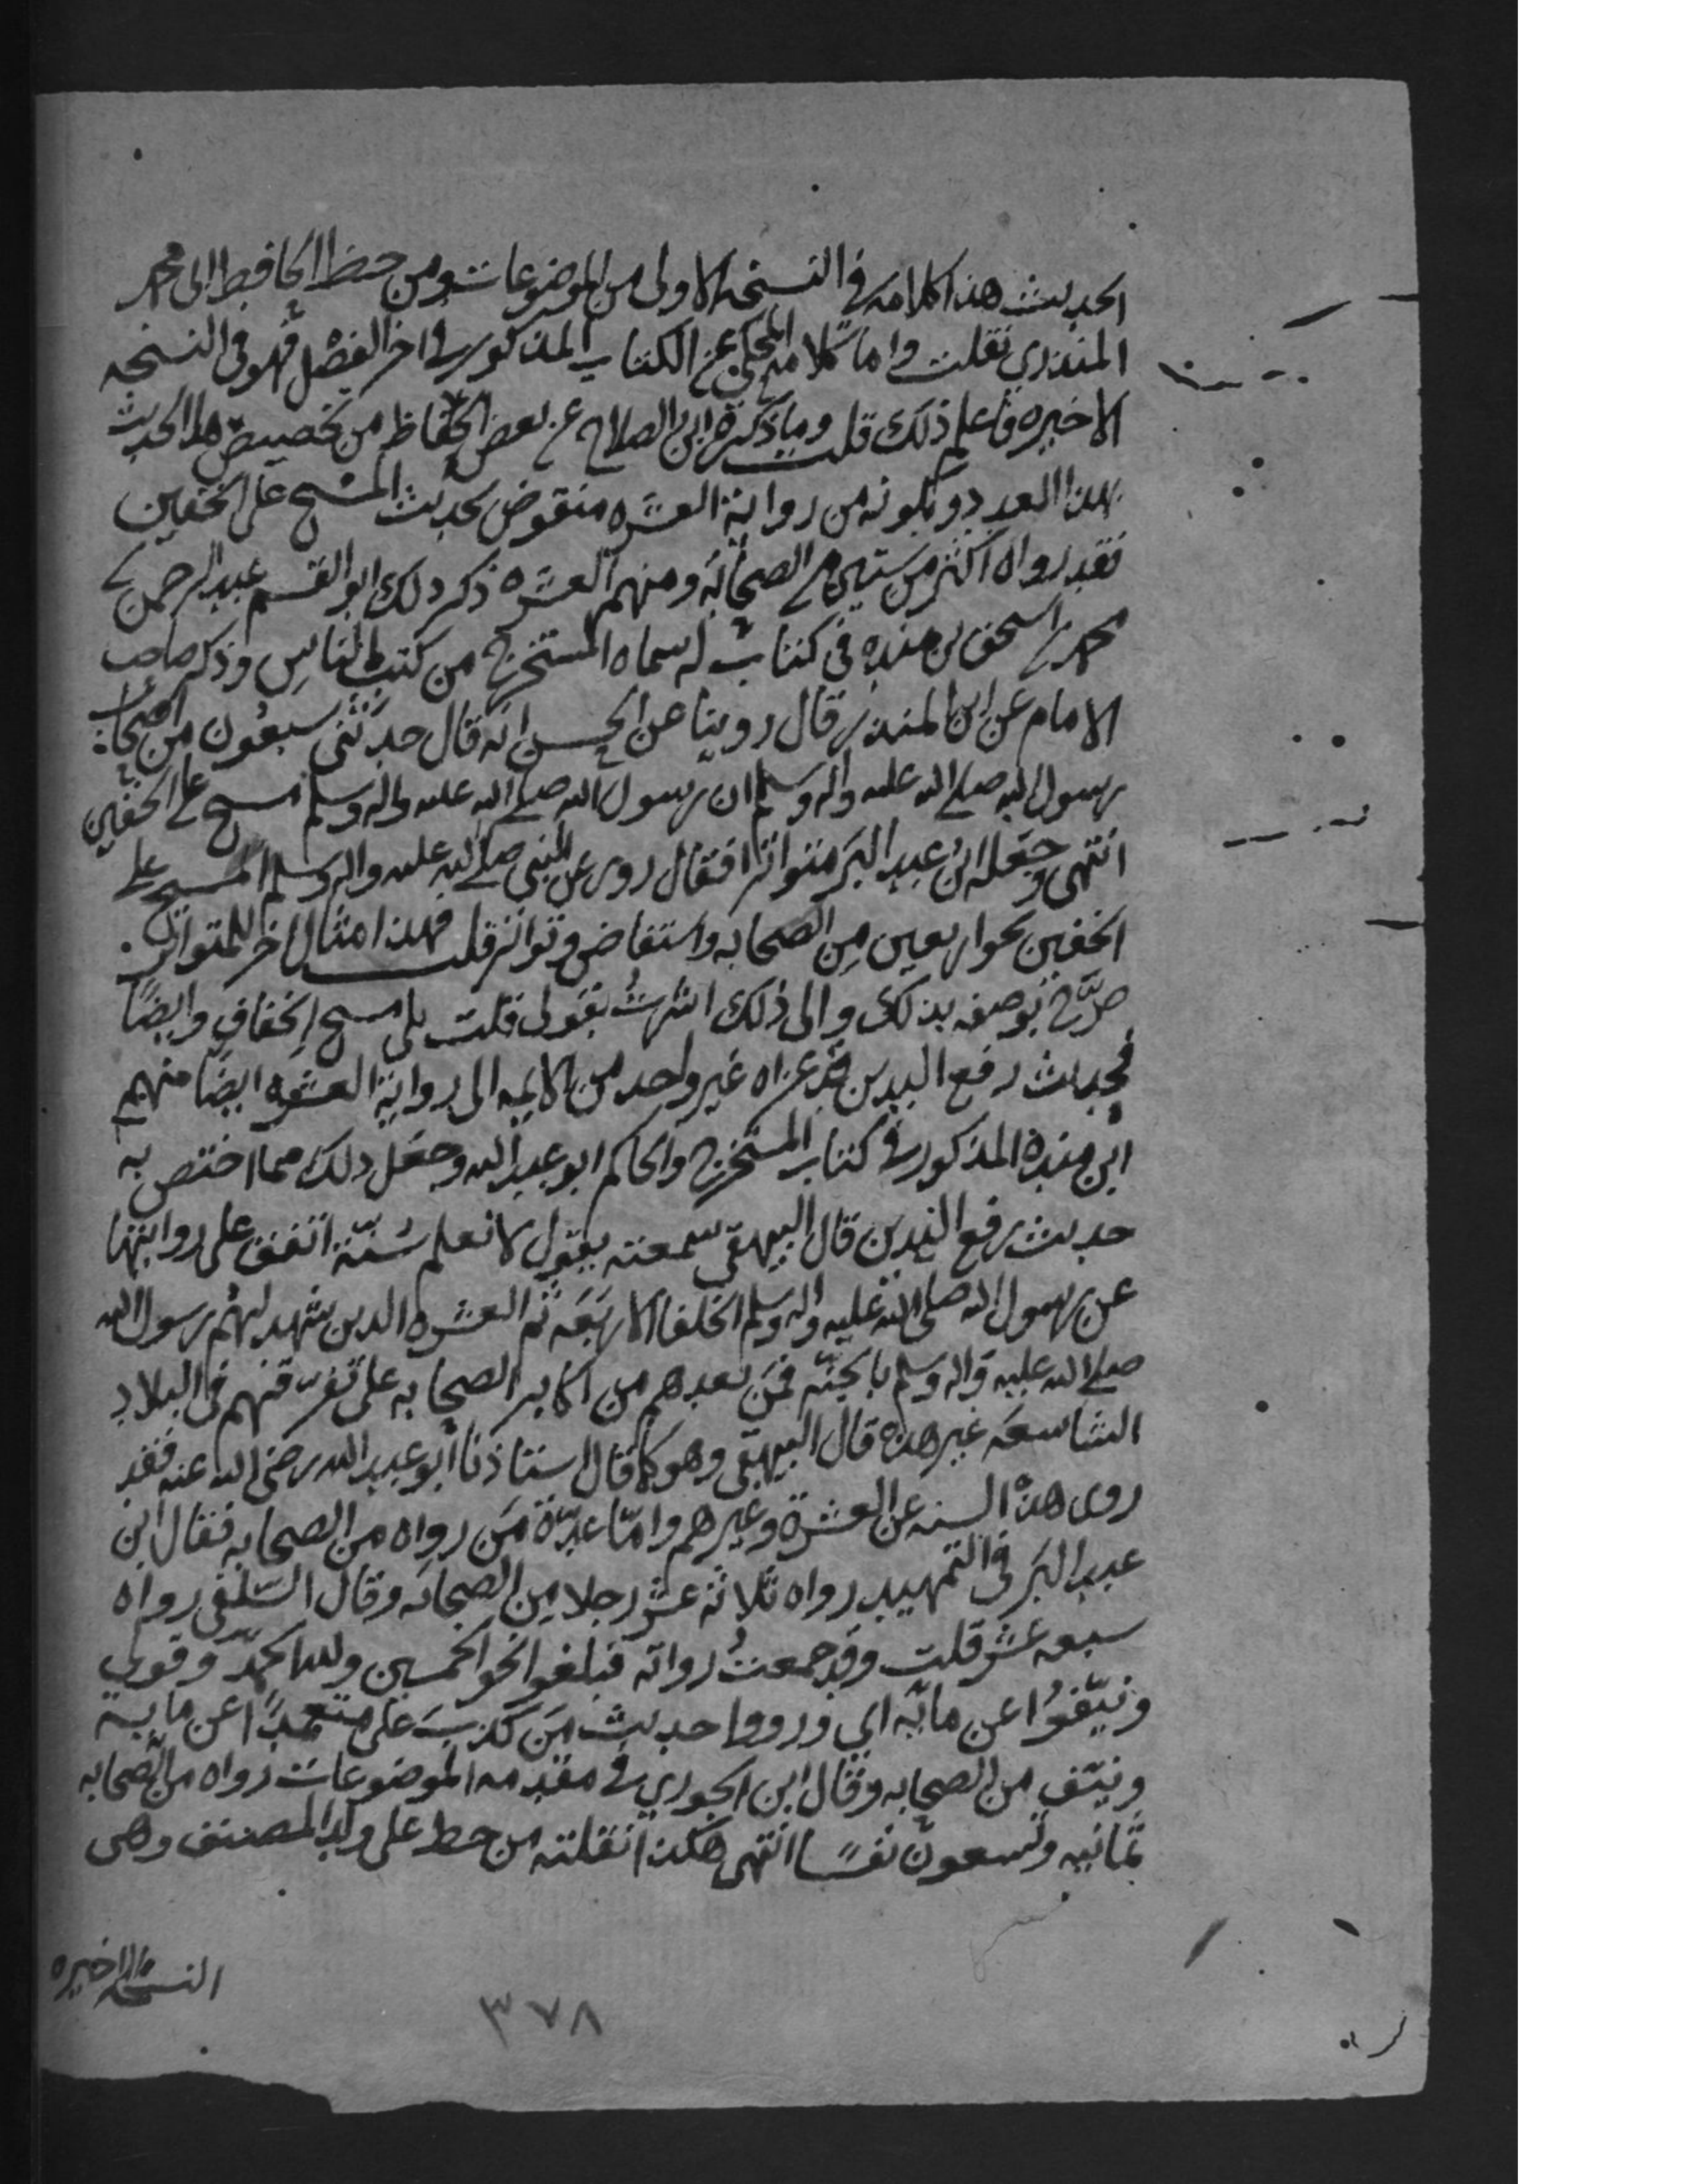 الحديث هذا كلامه في النسخه الاولى من الموضوعات ومن خط الحافظ ابى محمد
المنذري نقلت واما كلامه المحكي عن الكتاب المذكور في اخر الفصل فهو في النسخه
الاخيره فاعلم ذلك قلت وما ذكره ابن الصلاح عن بعض الحفاظ من تخصيص هذا الحديث
بهذا العدد وبكونه من رواية العشره منقوض بحديث المسح على الخفين
فقد رواه اكثر من ستين من الصحابه ومنهم العشره ذكر ذلك ابو القسم عبد الرحمن بن
محمد بن اسحق بن منده في كتاب له سماه المستخرج من كتب الناس وذكر صاحب
الامام عن ابن المنذر قال روينا عن الحسن انه قال حدثني سبعون من اصحاب
رسول الله صلى الله عليه واله وسلم ان رسول الله صلى الله عليه واله وسلم مسح على الخفين
انتهى وجعله ابن عبد البر متواترا فقال روى عن النبي صلى الله عليه واله وسلم المسح على
الخفين نحو اربعين من الصحابه واستفاض وتواتر قلت فهذا مثال اخر للمتواتر
صرّح بوصفه بذلك والى ذلك اشرت بقولى قلت بلى مسح الخفاف وايضًا
فحديث رفع اليدين قد عزاه غير واحد من الايمه الى رواية العشره ايضا منهم
ابن منده المذكور في كتاب المستخرج والحاكم ابو عبد الله وجعل ذلك مما اختص به
حديث رفع اليدين قال البيهقي سمعته يقول لا نعلم سُنّة اتفق على روايتها
عن رسول الله صلى الله عليه واله وسلم الخلفا الاربعه ثم العشره الدين شهد لهم رسول الله
صلى الله عليه واله وسلم بالجنّه فمن بعدهم من اكابر الصحابه على تفرقهم في البلاد
الشاسعه غير هذه قال البيهقي وهو كما قال استاذنا ابو عبد الله رضى الله عنه فقد
روى هذه السنه عن العشرة وغيرهم وامّا عدّة مَن رواه من الصحابه فقال ابن
عبد البر في التمهيد رواه ثلاثة عشر رجلا من الصحابه وقال السّلفي رواه
سبعه عشر قلت وقد جمعتُ رواته فبلغوا نحو الخمسين ولله الحمد وقولي
ونيّفوا عن مائه اي ورووا حديث مَن كذبَ على متعمدًا عن مايه
ونيّف من الصحابه وقال ابن الجوزي في مقدمه الموضوعات رواه من الصحابه
ثمانيه وتسعون نفسًا انتهى هكذا نقلته من خط على ولد المصنف وهى
النسخه الاخيره
٣٧٨